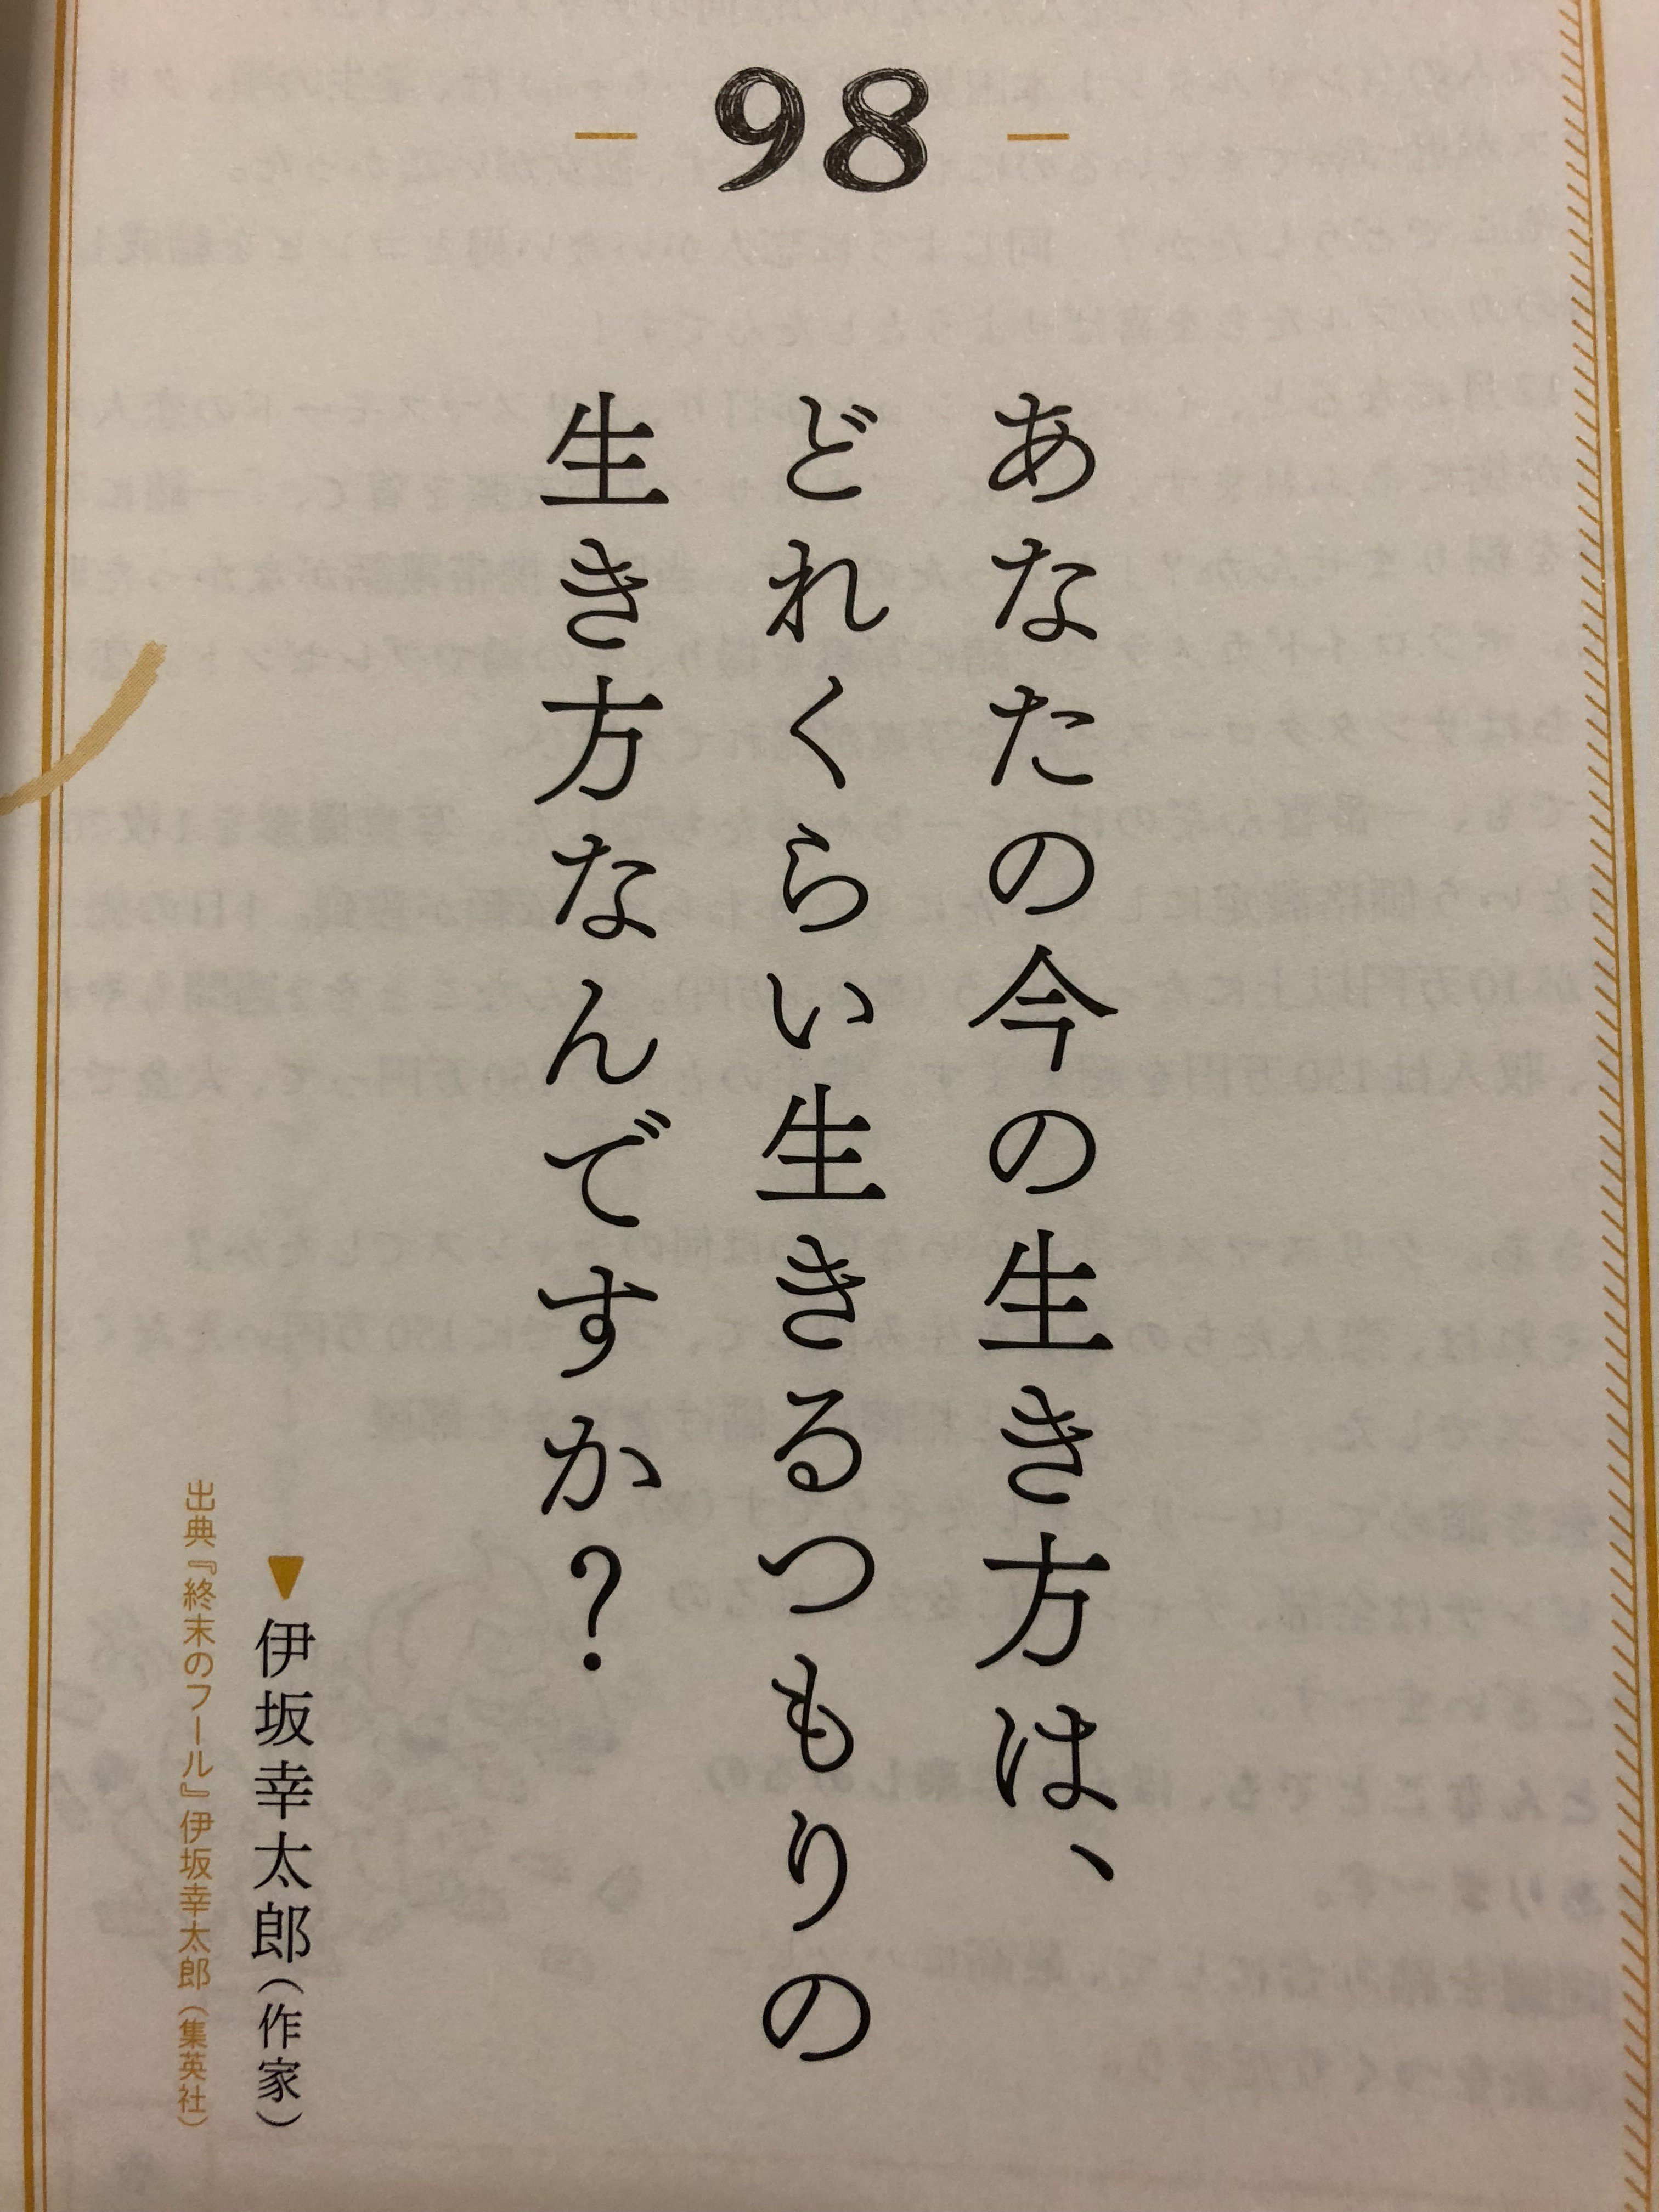 98
あなたの今の生き方は、
どれくらい生きるつもりの
生き方なんですか？
伊坂幸太郎（作家）
出典『終末のフール』伊坂幸太郎（集英社）